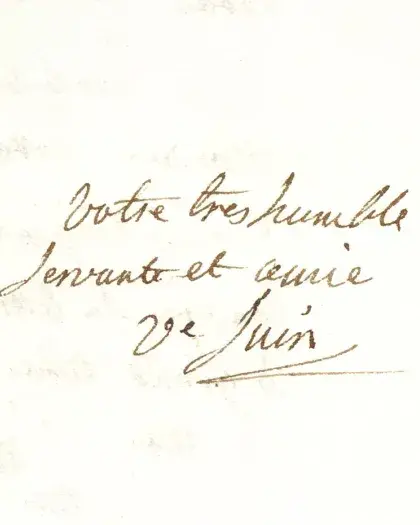 Votre tres humble
Servante et amie
Ve Juin